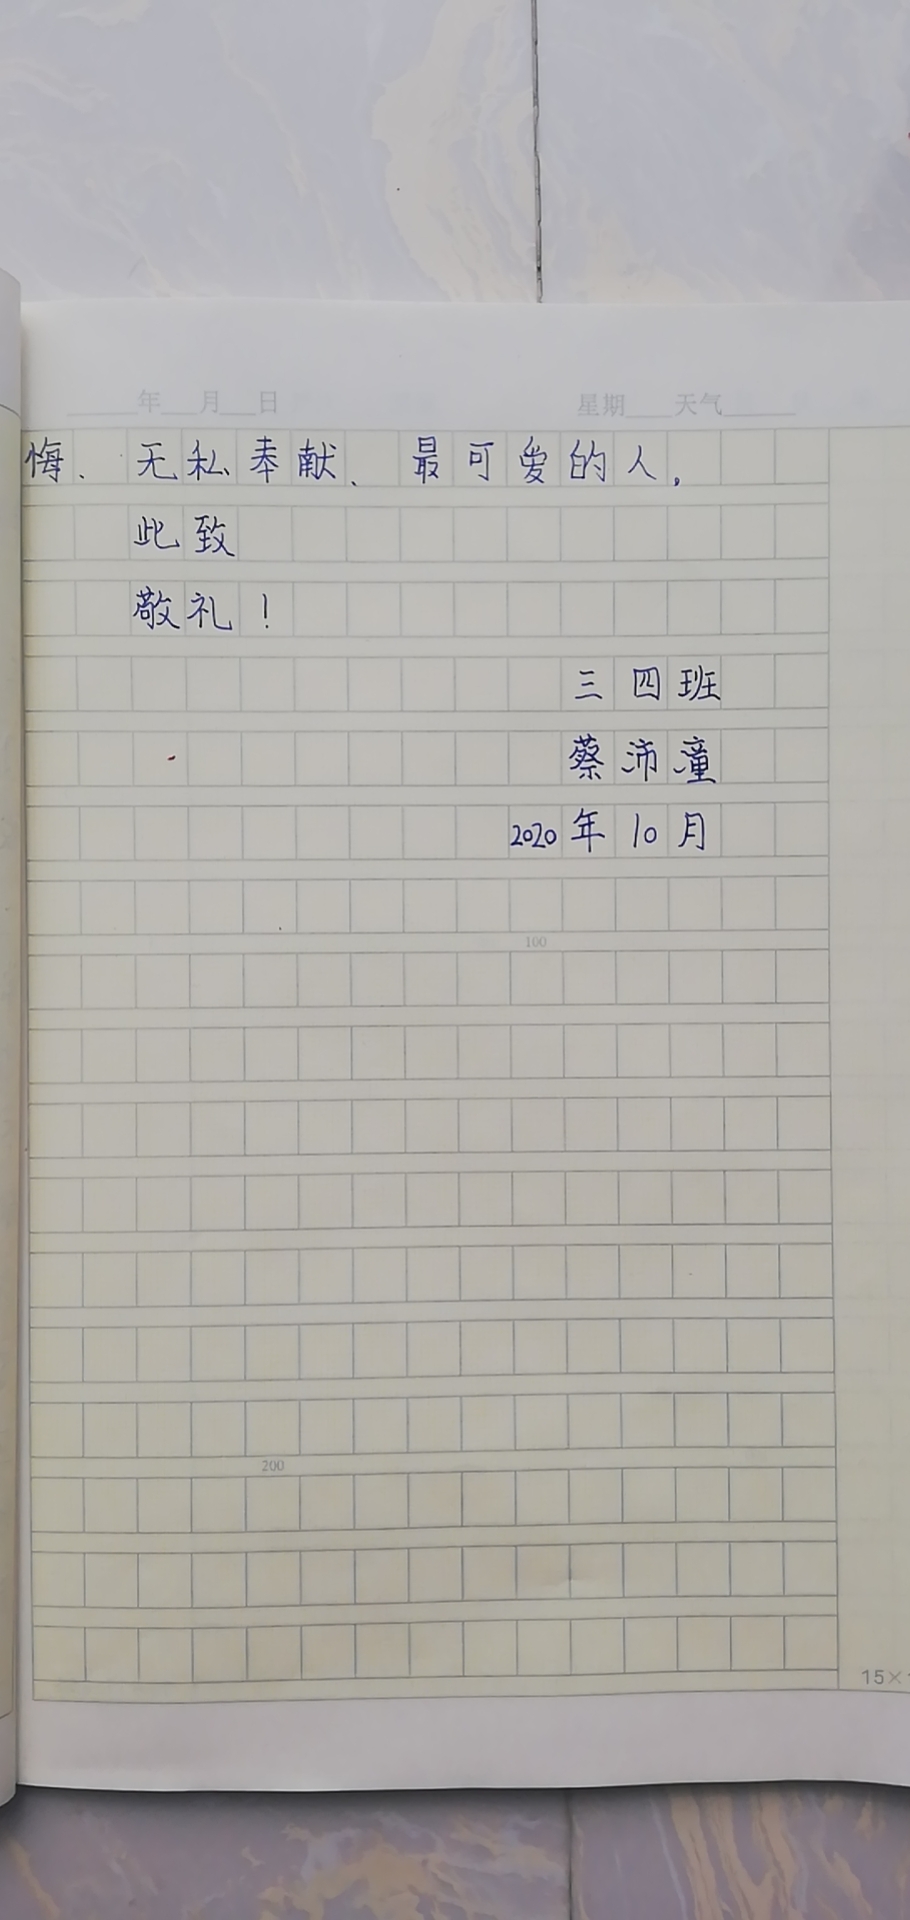 年 月 日 星期 天气
悔、无私奉献、最可爱的人。
此致
敬礼！
三四班
蔡沛潼
2020年10月
100
200
15×